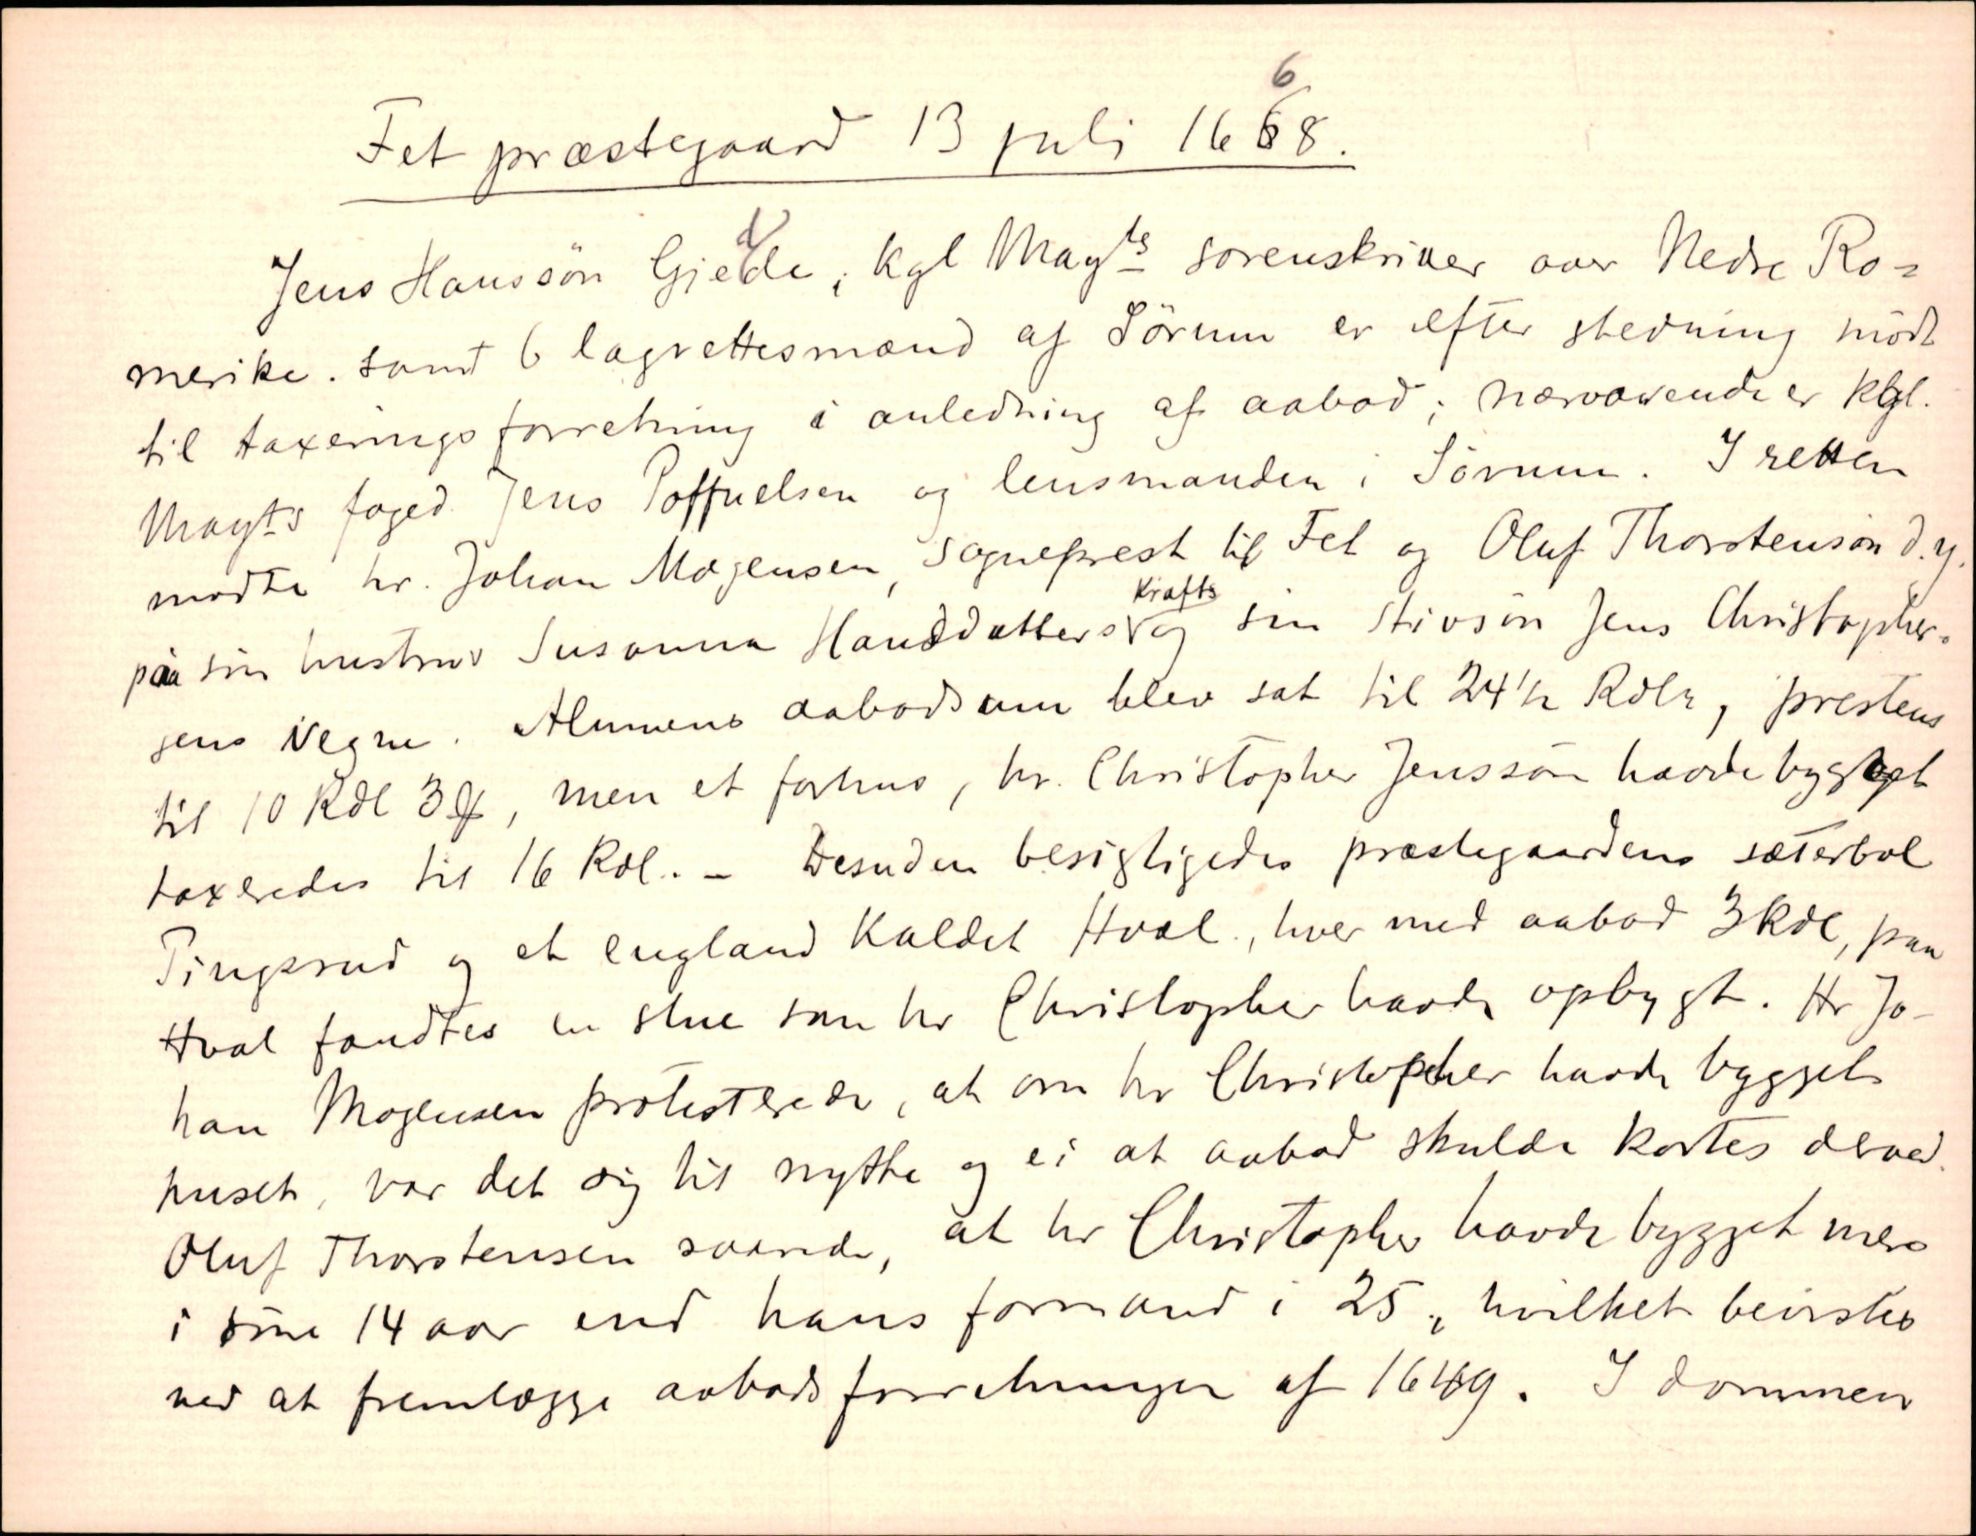 Fet præstegaard 13 juli 1668.
Jens Hanssön Gjedde, kgl Mayts sorenskriver over Nedre Ro=
merike. samt 6 lagrettesmænd af Sörum er efter stevning mödt
til taxeringsforretning i anledning af aabod; nærværende er kgl.
Mayts foged Jens Poffuelsen og lensmanden i Sörum. I retten
mödte hr. Johan Mogensen, sogneprest til Fet og Oluf Thorstensön d.y.
paa sin hustrus Susanna Hansdatters Krafts og sin stivsön Jens Christopher-
sens vegne. Almuens aabodsum blev sat til 24½ Rdlr, prestens
til 10 Rdl 3 ꝗ, men et forhus, hr. Christopher Jenssön havde bygget
taxeredes til 16 Rdl. - Desuden besigtigedes præstegaardens sæterbol
Tingsrud og et england kaldet Hval, hver med aabod 3 Rdl, paa
Hval fandtes en stue som hr Christopher havde opbygt. Hr Jo-
han Mogensen protesterede, at om hr Christopher havde bygget
huset, var det sig til nytte og ei at aabod skulde kortes derved.
Oluf Thorstensen svarede, at hr Christopher havde bygget mere
i sine 14 aar end hans formand i 25, hvilket bevistes
ved at fremlægge aabodsforretningen af 1649. I dommen